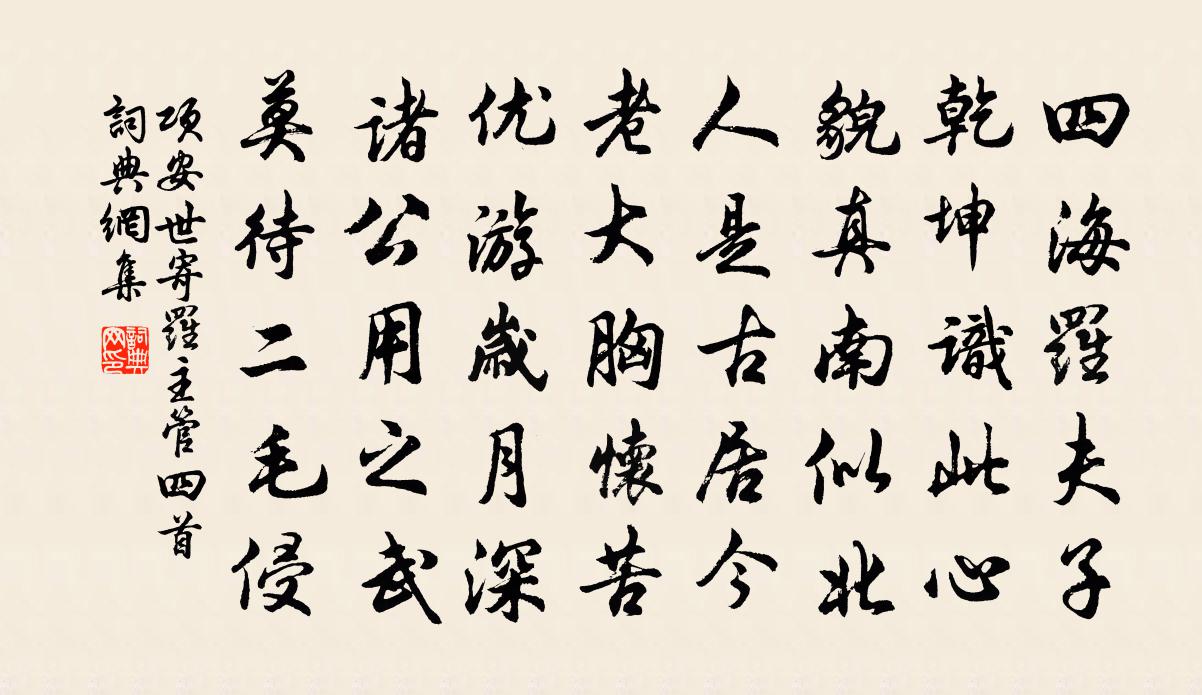 四海羅夫子
乾坤識此心
貌真南似北
人是古居今
老大胸懷苦
优游歲月深
诸公用之武
莫待二毛侵
項安世寄羅主管四首
詞典網集
詞典网印